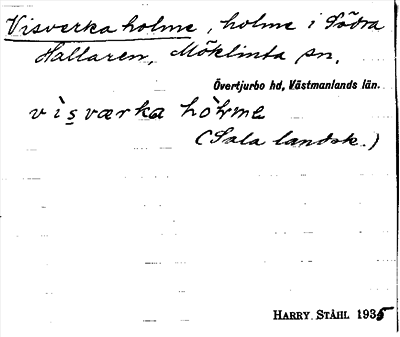 Visverka holme, holme i Södra
Hallaren, Möklinta sn,
Övertjurbo hd, Västmanlands län.
vi̇̀sværka hòlme
(Sala landsk.)
HARRY STÅHL 1935